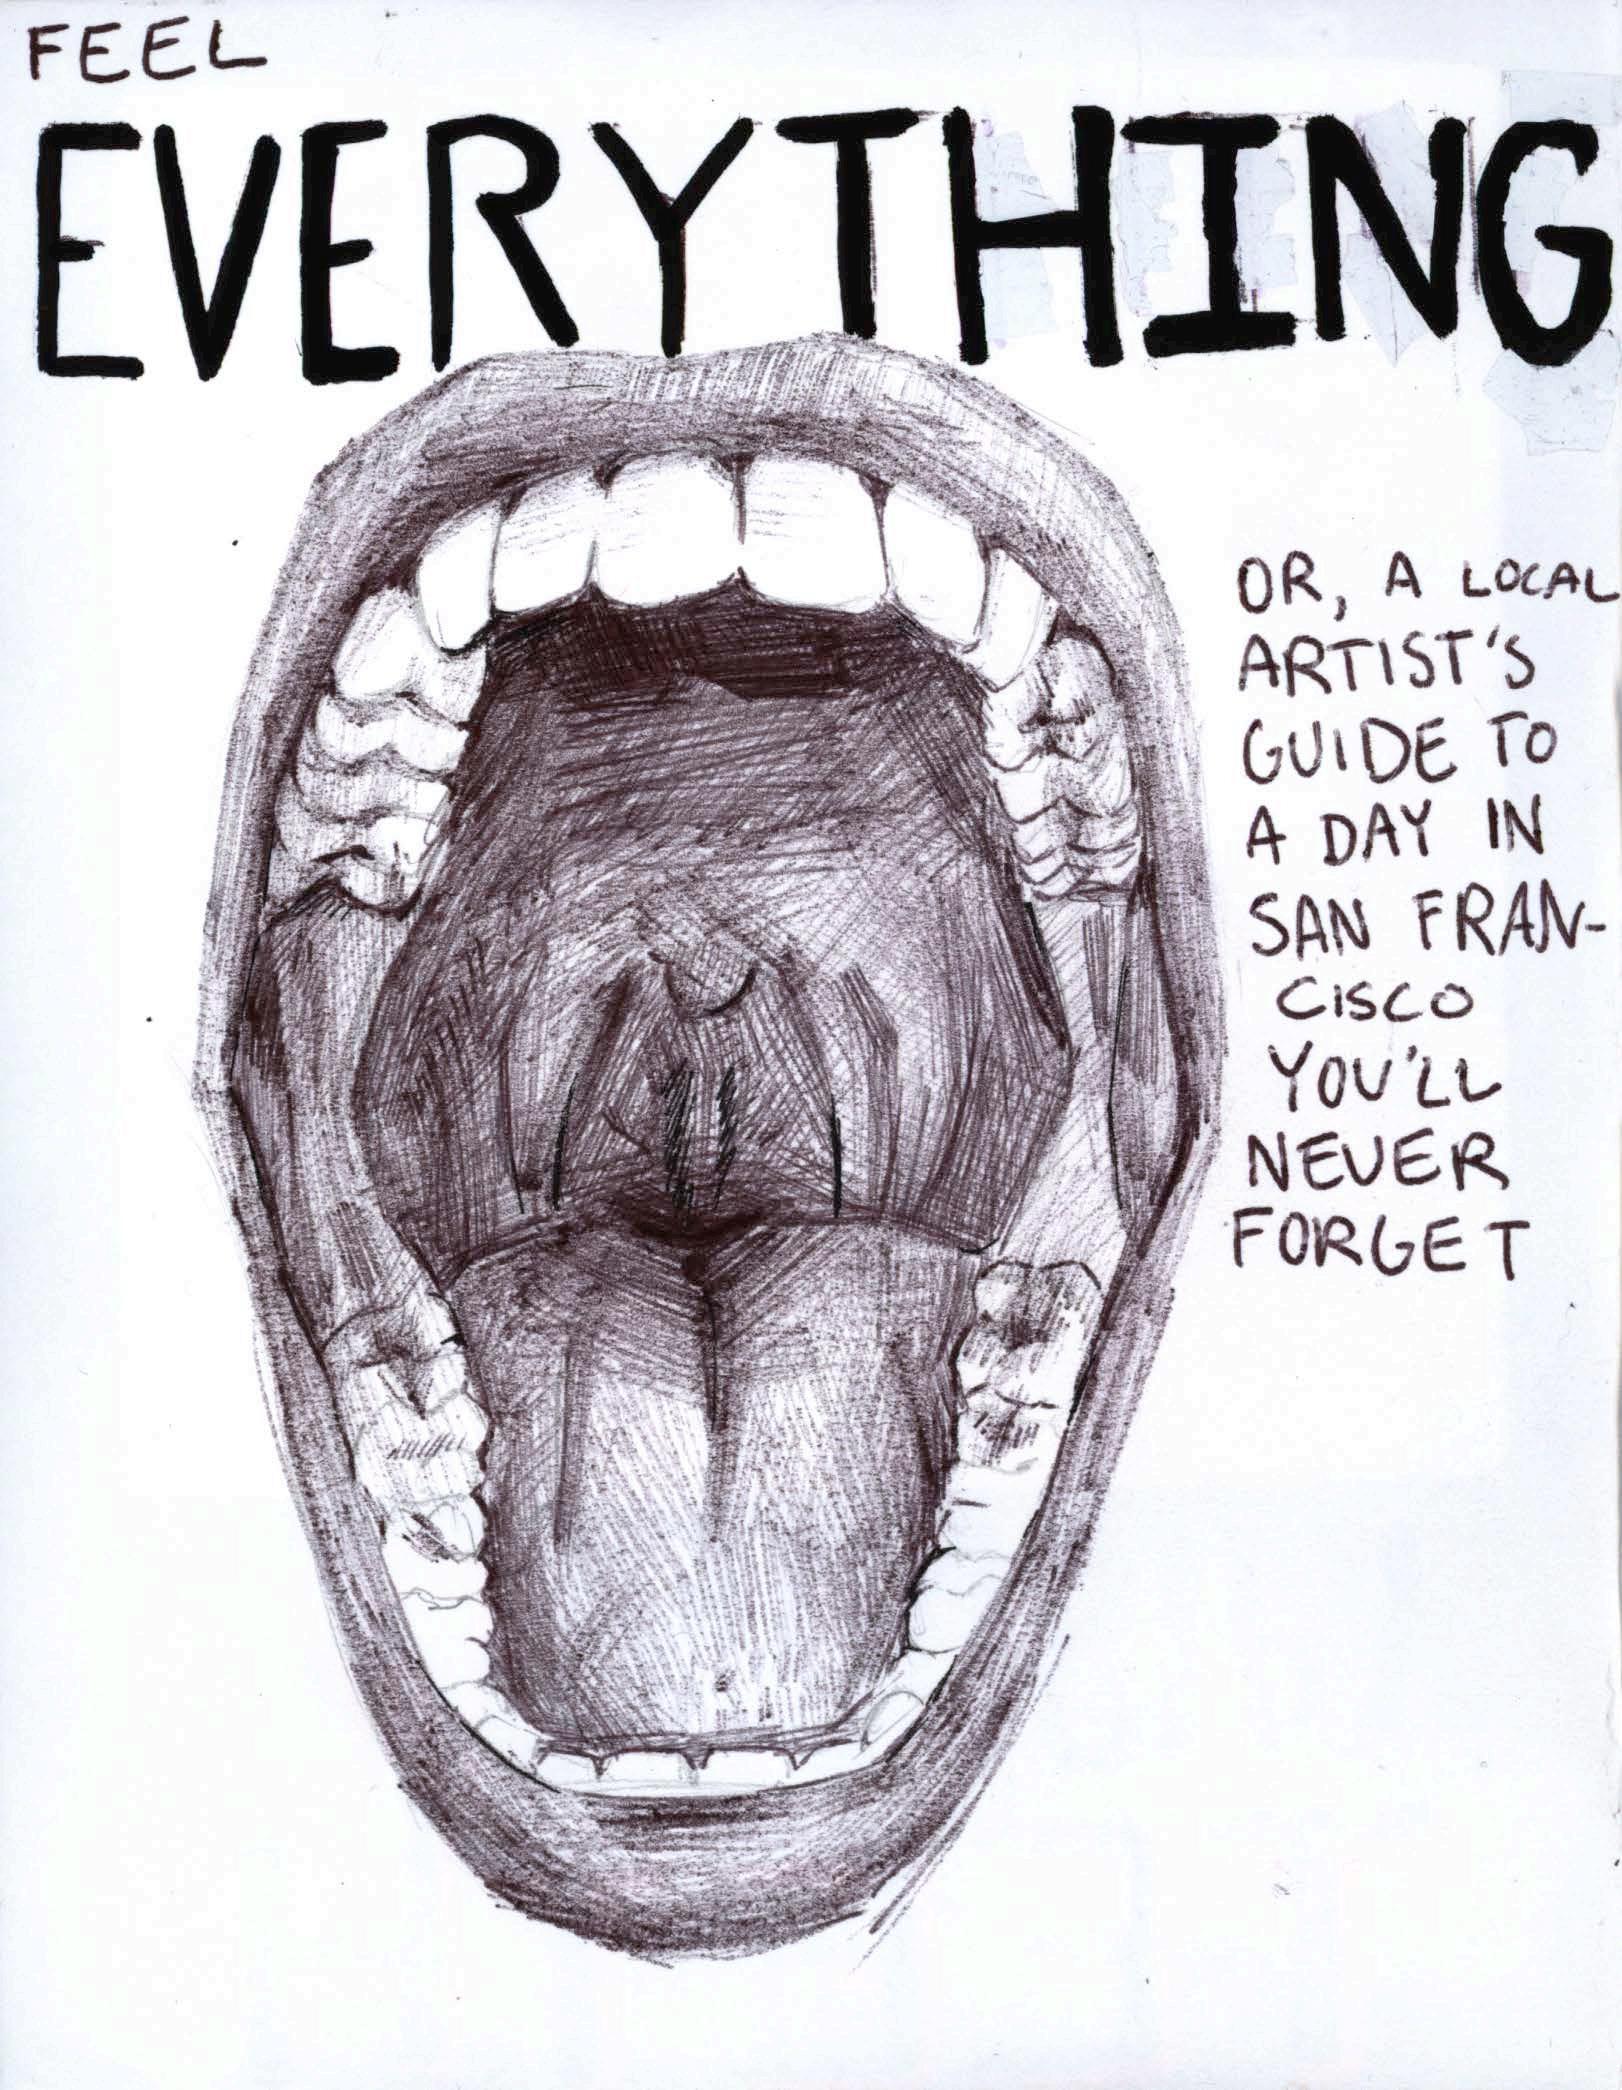 FEEL
EVERYTHING
OR, A LOCAL
ARTIST'S
GUIDE TO
A DAY IN
SAN FRAN-
CISCO
YOU'LL
NEVER
FORGET